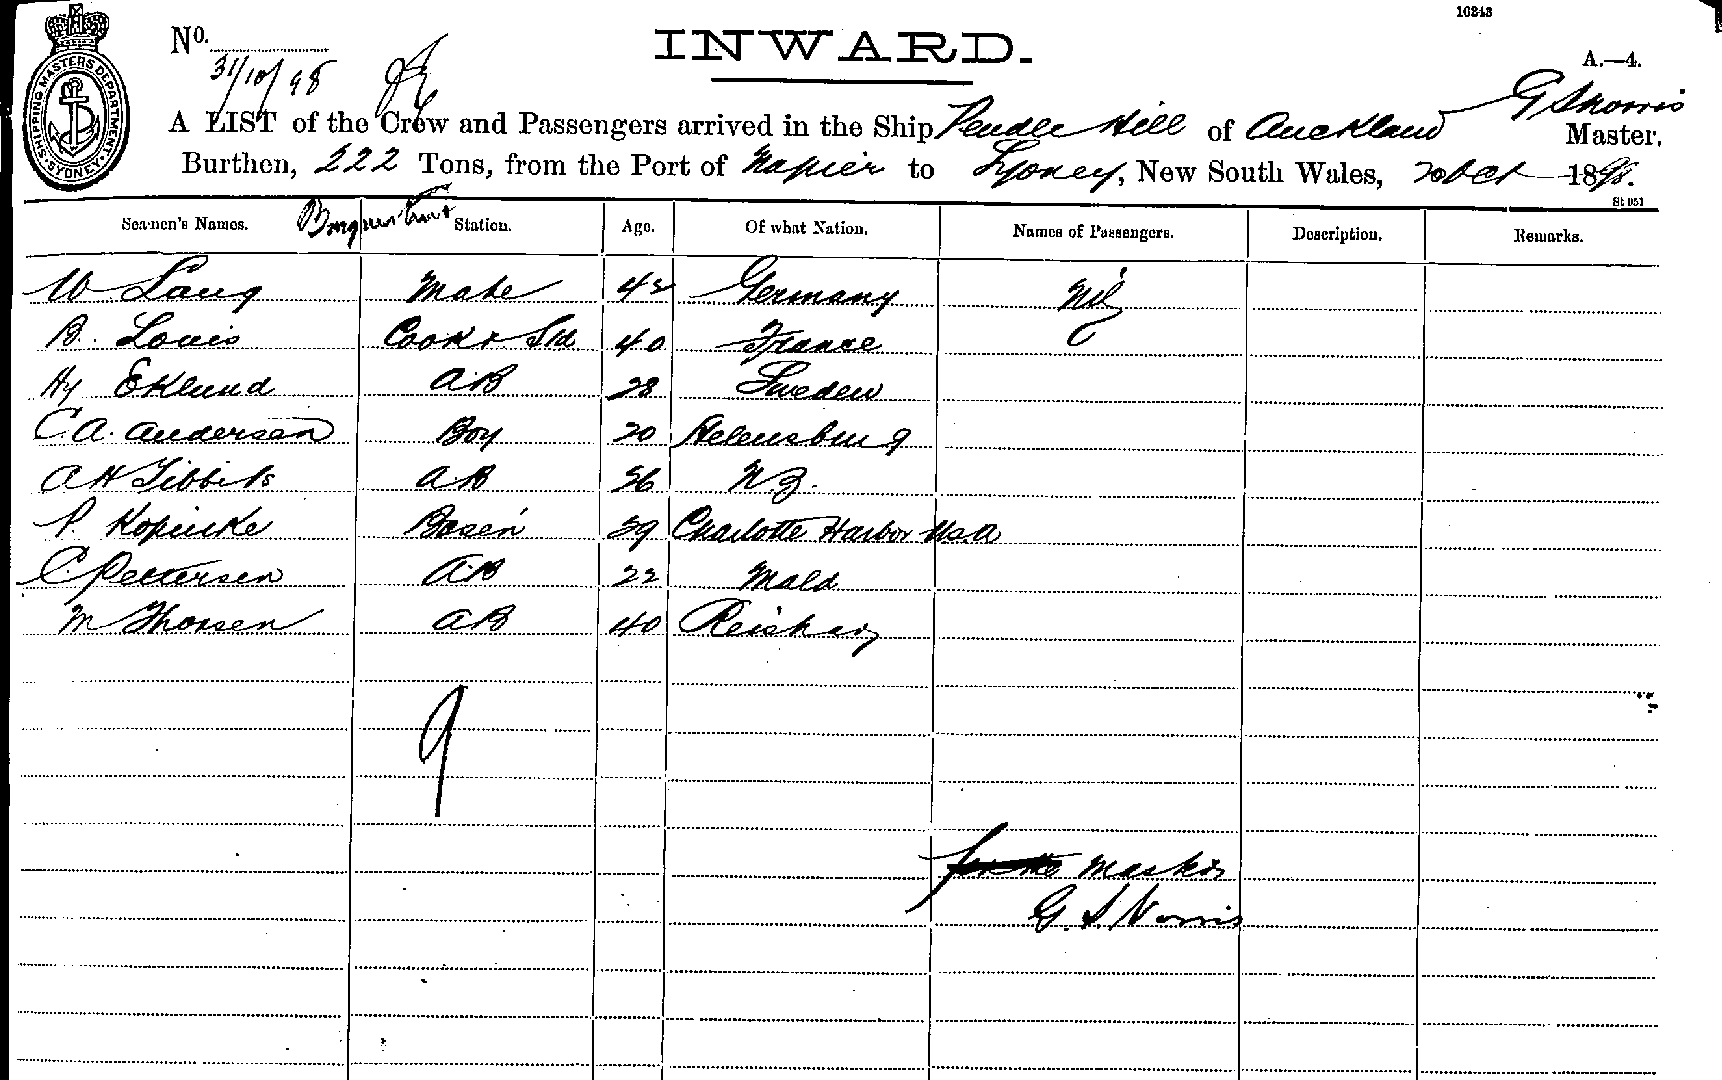 10243
SHIPPING MASTERS DEPARTMENT SYDNEY
No.
INWARD.
A.—4.
31/10/98
G S Norris
A LIST of the Crew and Passengers arrived in the Ship Pendle Hill of Auckland Master,
Burthen, 222 Tons, from the Port of Napier to Sydney, New South Wales, Oct 1898.
St 051
Seamen's Names. Station. Age. Of what Nation. Names of Passengers. Description. Remarks.
W Lang Mate 42 Germany Nil
B. Louis Cook & Std 40 France
Hy Eklund AB 28 Sweden
C.A. Andersen Boy 20 Helensburg
A H Tibbits AB 36 N Z.
P. Kopinke Bosen 39 Charlotte Harbor USA
C. Pettersen AB 22 Mald
M Thorsen AB 40
9
Master
G. S. Norris